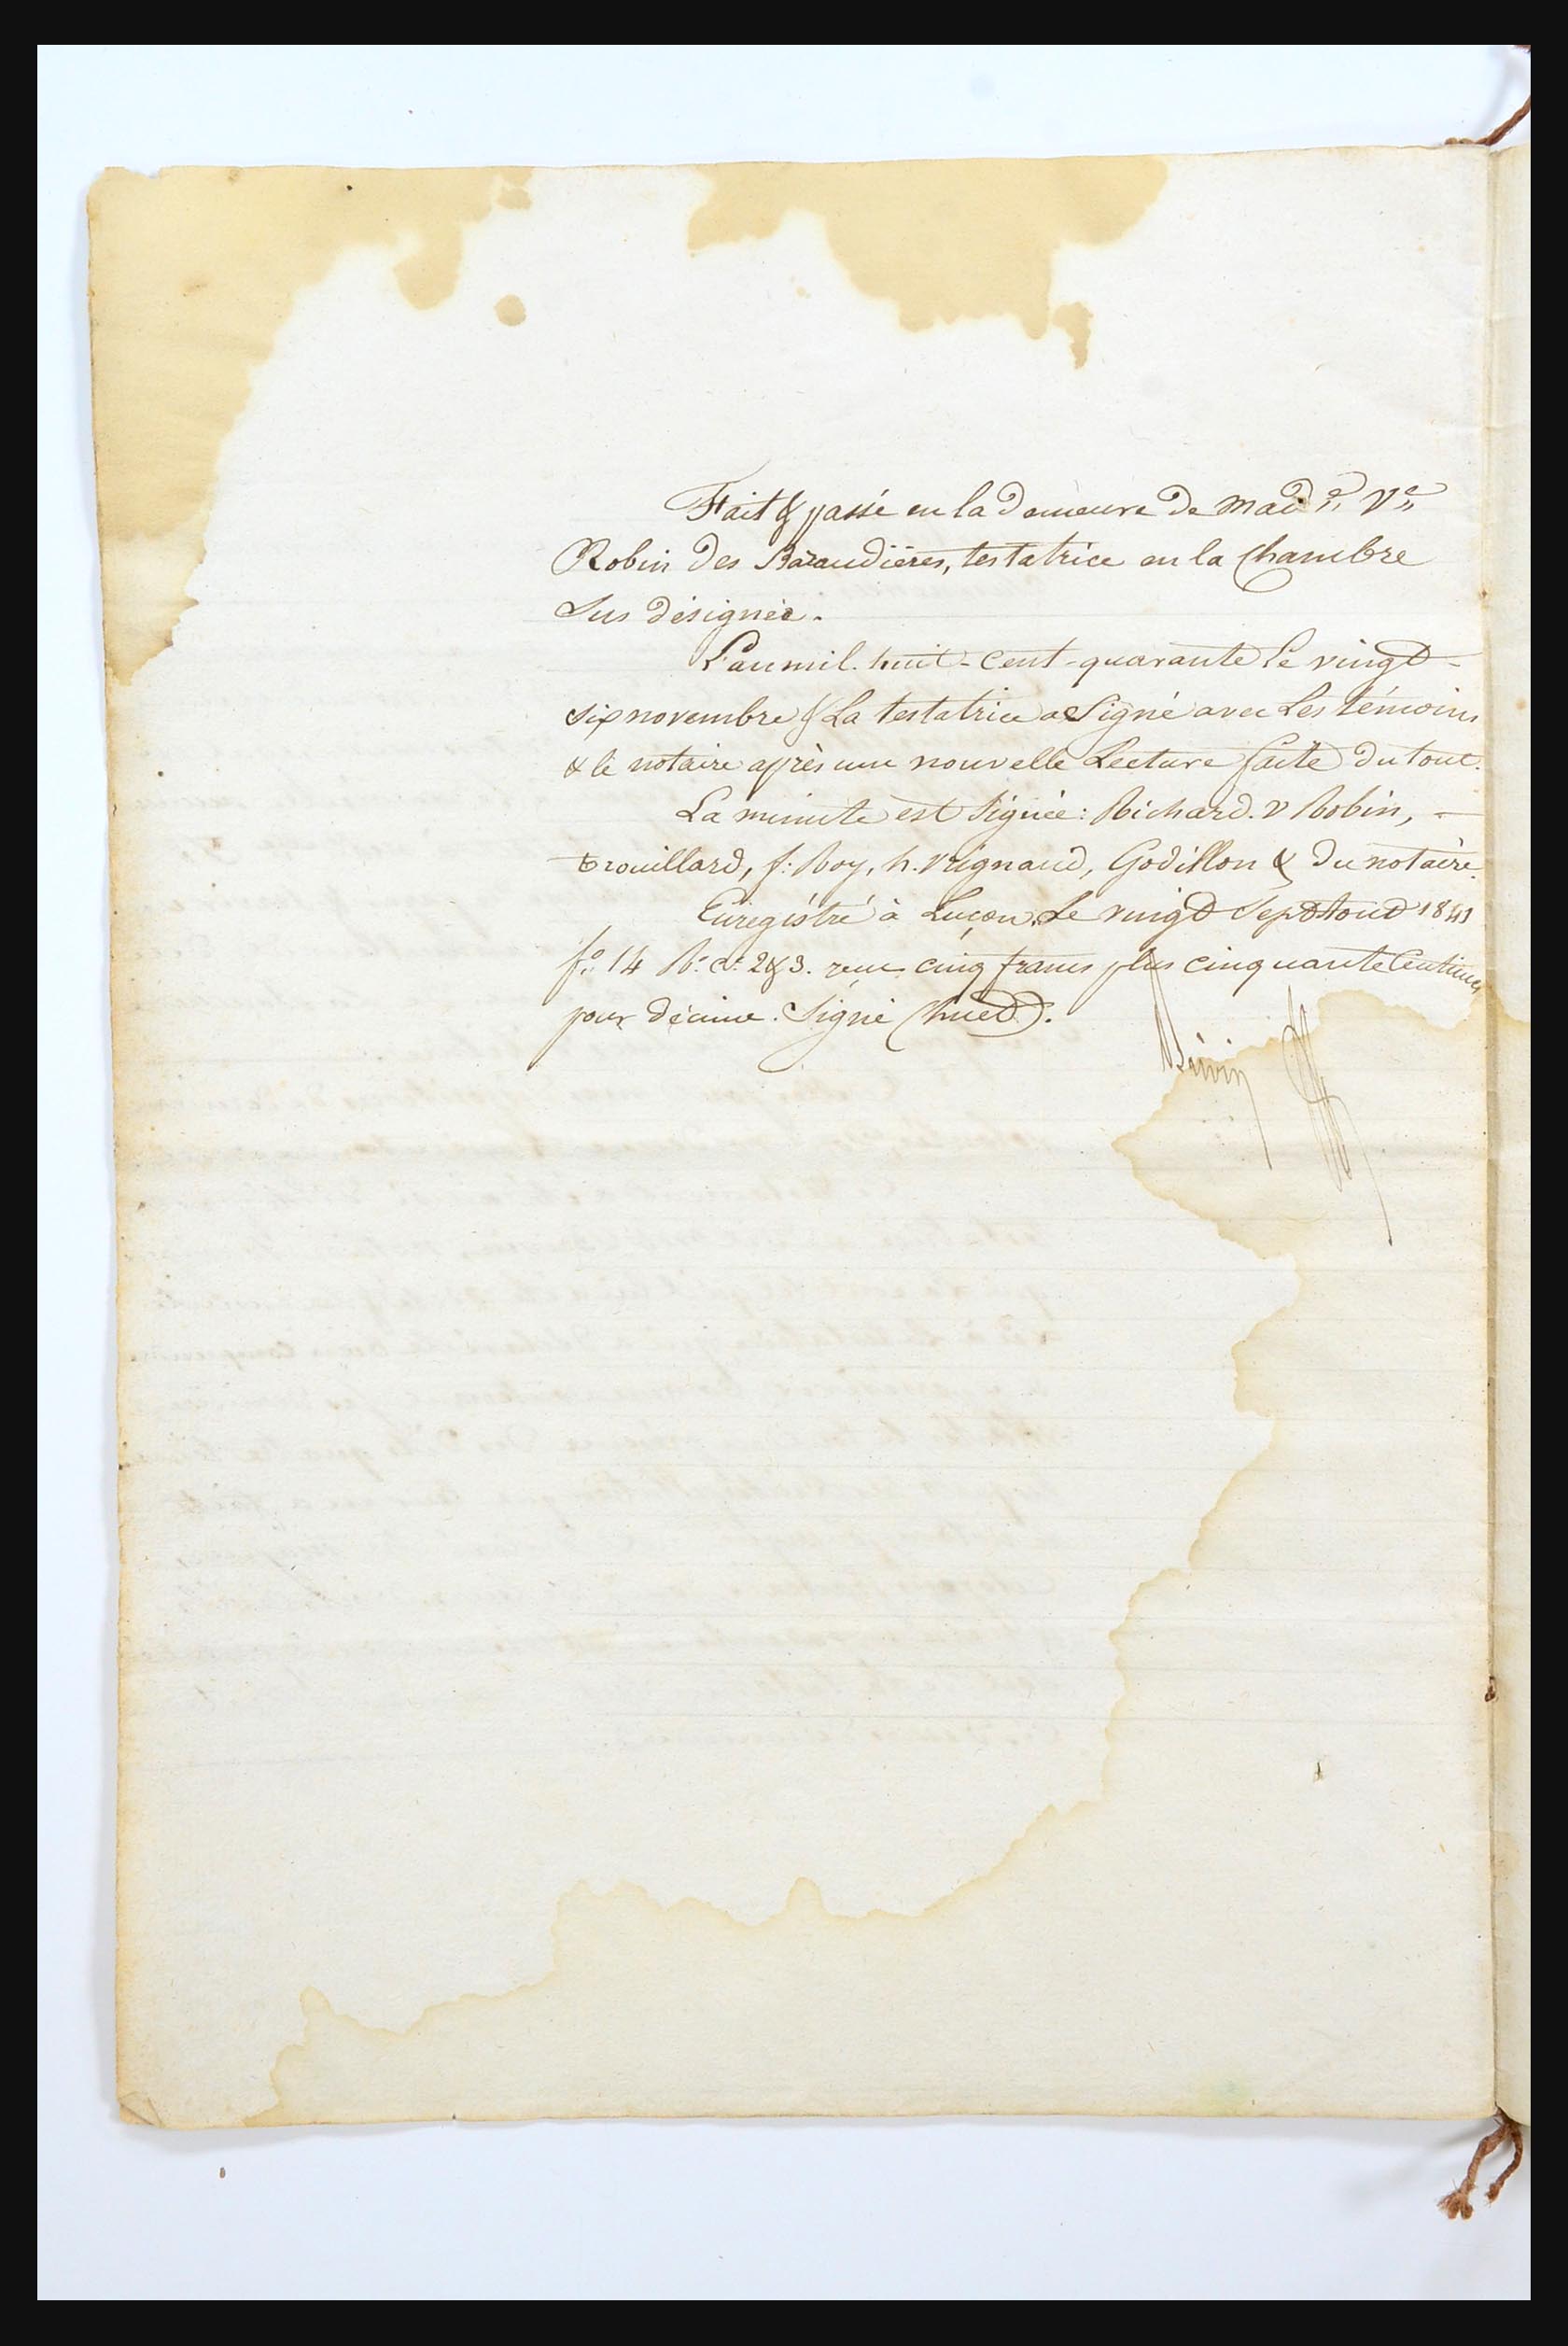 Fait & passé en la demeure de mad.e V.e
Robin des Bazaudières, testatrice en la Chambre
Sus désignée.
L'an mil-huit-cent-quarante le vingt-
six novembre & La testatrice a Signé avec Les témoins
& le notaire après une nouvelle Lecture faite du tout.
La minute est Signée : Richard. V Robin, -
trouillard, f. Roy, h. vrignaud, Godillon & du notaire.
Enregistré à Luçon Le vingt Sept aout 1841
f.o 14 R.o c.s 2 & 3. reçu cinq francs plus cinquante Centimes
pour décime. Signé Chuet.